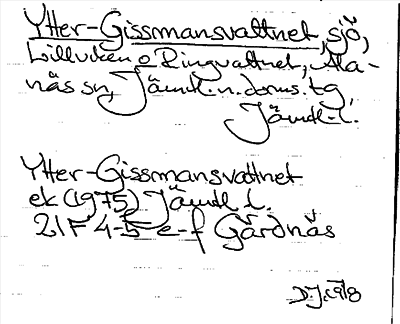 Ytter-Gissmansvattnet, sjö,
Lillviken o Ringvattnet, Ala-
näs sn, Jämtl. n. doms. tg,
Jämtl. l.
Ytter-Gissmansvattnet
ek (1975) Jämtl l.
21F 4-5 e-f Gärdnäs